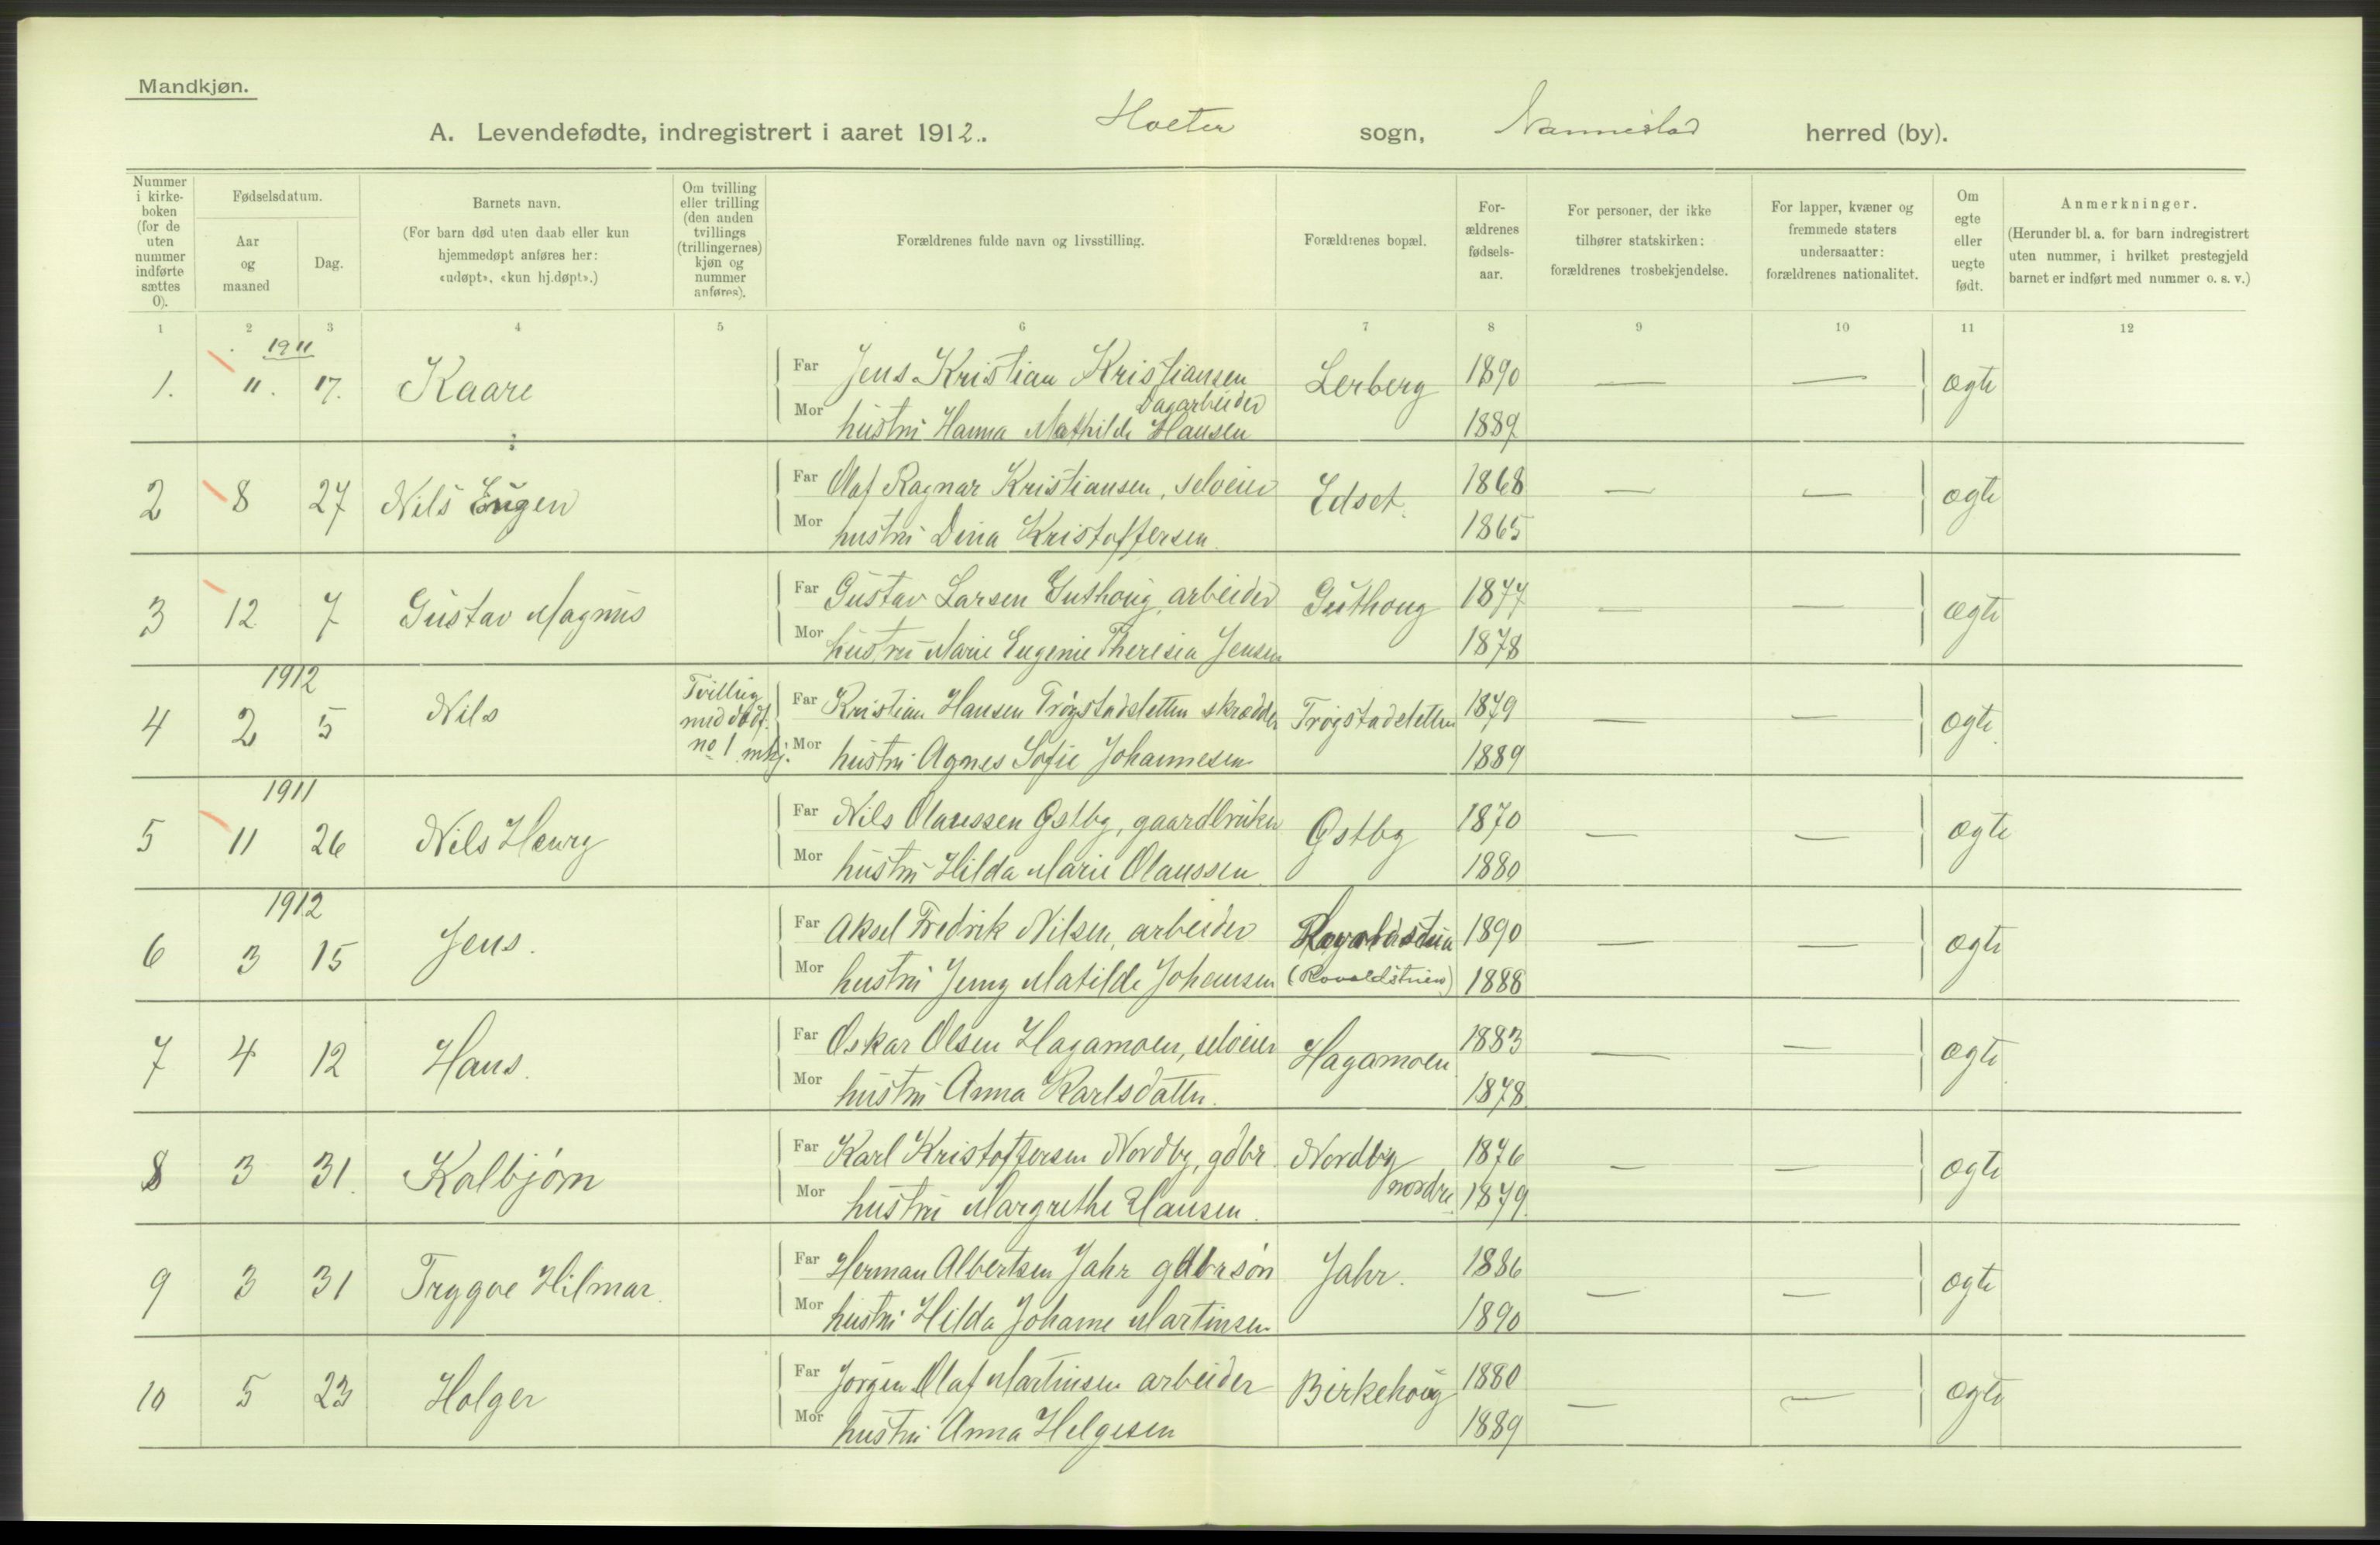 Mandkjøn.
A. Levendefødte, indregistrert i aaret 1912. Holter sogn, Nannestad herred (by).
Nummer i kirke-boken (for de uten nummer indførte sættes 0).
Fødselsdatum.
Aar og maaned
Dag.
Barnets navn.
(For barn død uten daab eller kun hjemmedøpt anføres her: «udøpt», «kun hj.døpt».)
Om tvilling eller trilling (den anden tvillings (trillingernes) kjøn og nummer anføres).
Forældrenes fulde navn og livsstilling.
Forældrenes bopæl.
For-ældrenes fødsels-aar.
For personer, der ikke tilhører statskirken: forældrenes trosbekjendelse.
For lapper, kvæner og fremmede staters undersaatter: forældrenes nationalitet.
Om egte eller uegte født.
Anmerkninger.
(Herunder bl. a. for barn indregistrert uten nummer, i hvilket prestegjeld barnet er indført med nummer o. s. v.)
1 2 3 4 5 6 7 8 9 10 11 12
1911
1. 11. 17. Kaare Far Jens Kristian Kristiansen Dagarbeider Lerberg 1890 — — ægte
Mor hustru Hanna Mathilde Hansen 1889
2 8 27 Nils Eugen Far Olaf Ragnar Kristiansen, selveier Edset 1868 — — ægte
Mor hustru Dina Kristoffersen 1865
3 12 7 Gustav Magnus Far Gustav Larsen Guthoug, arbeider Guthoug 1877 — — ægte
Mor hustru Marie Eugenie Theresia Jensen 1878
1912
4 2 5 Nils Tvilling med dødf. no 1 mkj. Far Kristian Hansen Trøgstadsletten skrædder Trøgstadsletten 1879 — — ægte
Mor hustru Agnes Sofie Johannesen 1889
1911
5 11 26 Nils Henry Far Nils Olaussen Østby, gaardbruker Østby 1870 — — ægte
Mor hustru Hilda Marie Olaussen 1880
1912
6 3 15 Jens. Far Aksel Fredrik Nilsen, arbeider 1890 — — ægte
Mor hustru Jenny Matilde Johansen 1888
7 4 12 Hans. Far Oskar Olsen Hagamoen, selveier Hagamoen 1883 — — ægte
Mor hustru Anna Karlsdatter. 1878
8 3 31. Kolbjørn Far Karl Kristoffersen Nordby, gdbr Nordby nordre 1876 — — ægte
Mor hustru Margrethe Hansen. 1879
9 3 31 Trygve Hilmar. Far Herman Albertsen Jahr gdbrsøn Jahr. 1886 — — ægte
Mor hustru Hilda Johanne Martinsen 1890
10 5 23 Holger Far Jørgen Olaf Martinsen arbeider Birkehoug 1880 — — ægte
Mor hustru Anna Helgesen 1889